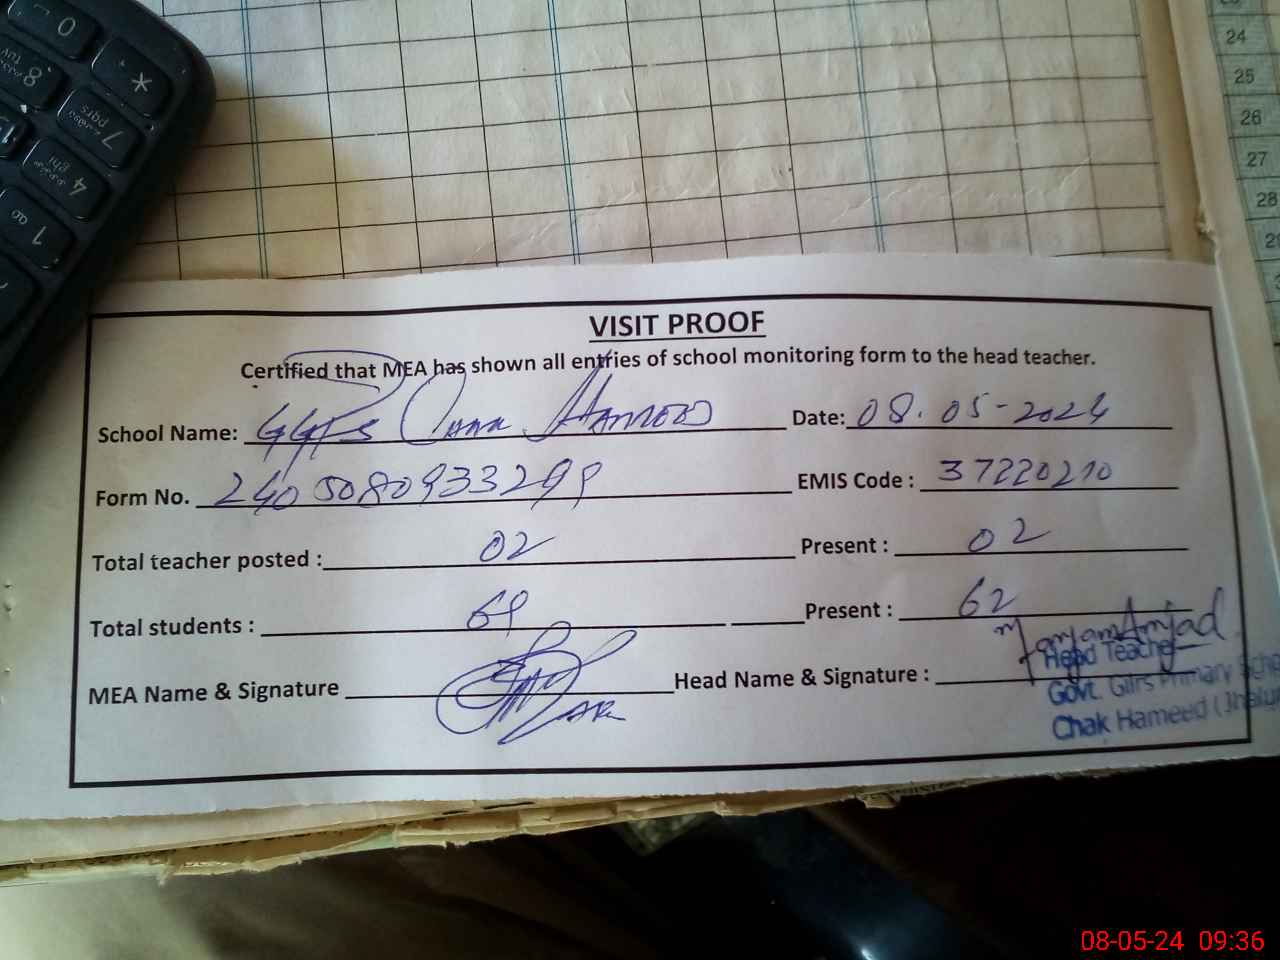 0
*
8 tuv
7 pqrs
4 ghi
1
24
25
26
27
28
29
VISIT PROOF
Certified that MEA has shown all entries of school monitoring form to the head teacher.
School Name: GGPS Chak Hameed Date: 08-05-2024
Form No. 2405080933299 EMIS Code : 37220210
Total teacher posted : 02 Present : 02
Total students : 69 Present : 62
MEA Name & Signature Head Name & Signature : Maryam Amjad
Head Teacher
Govt. Girls Primary
Chak Hameed
08-05-24 09:36